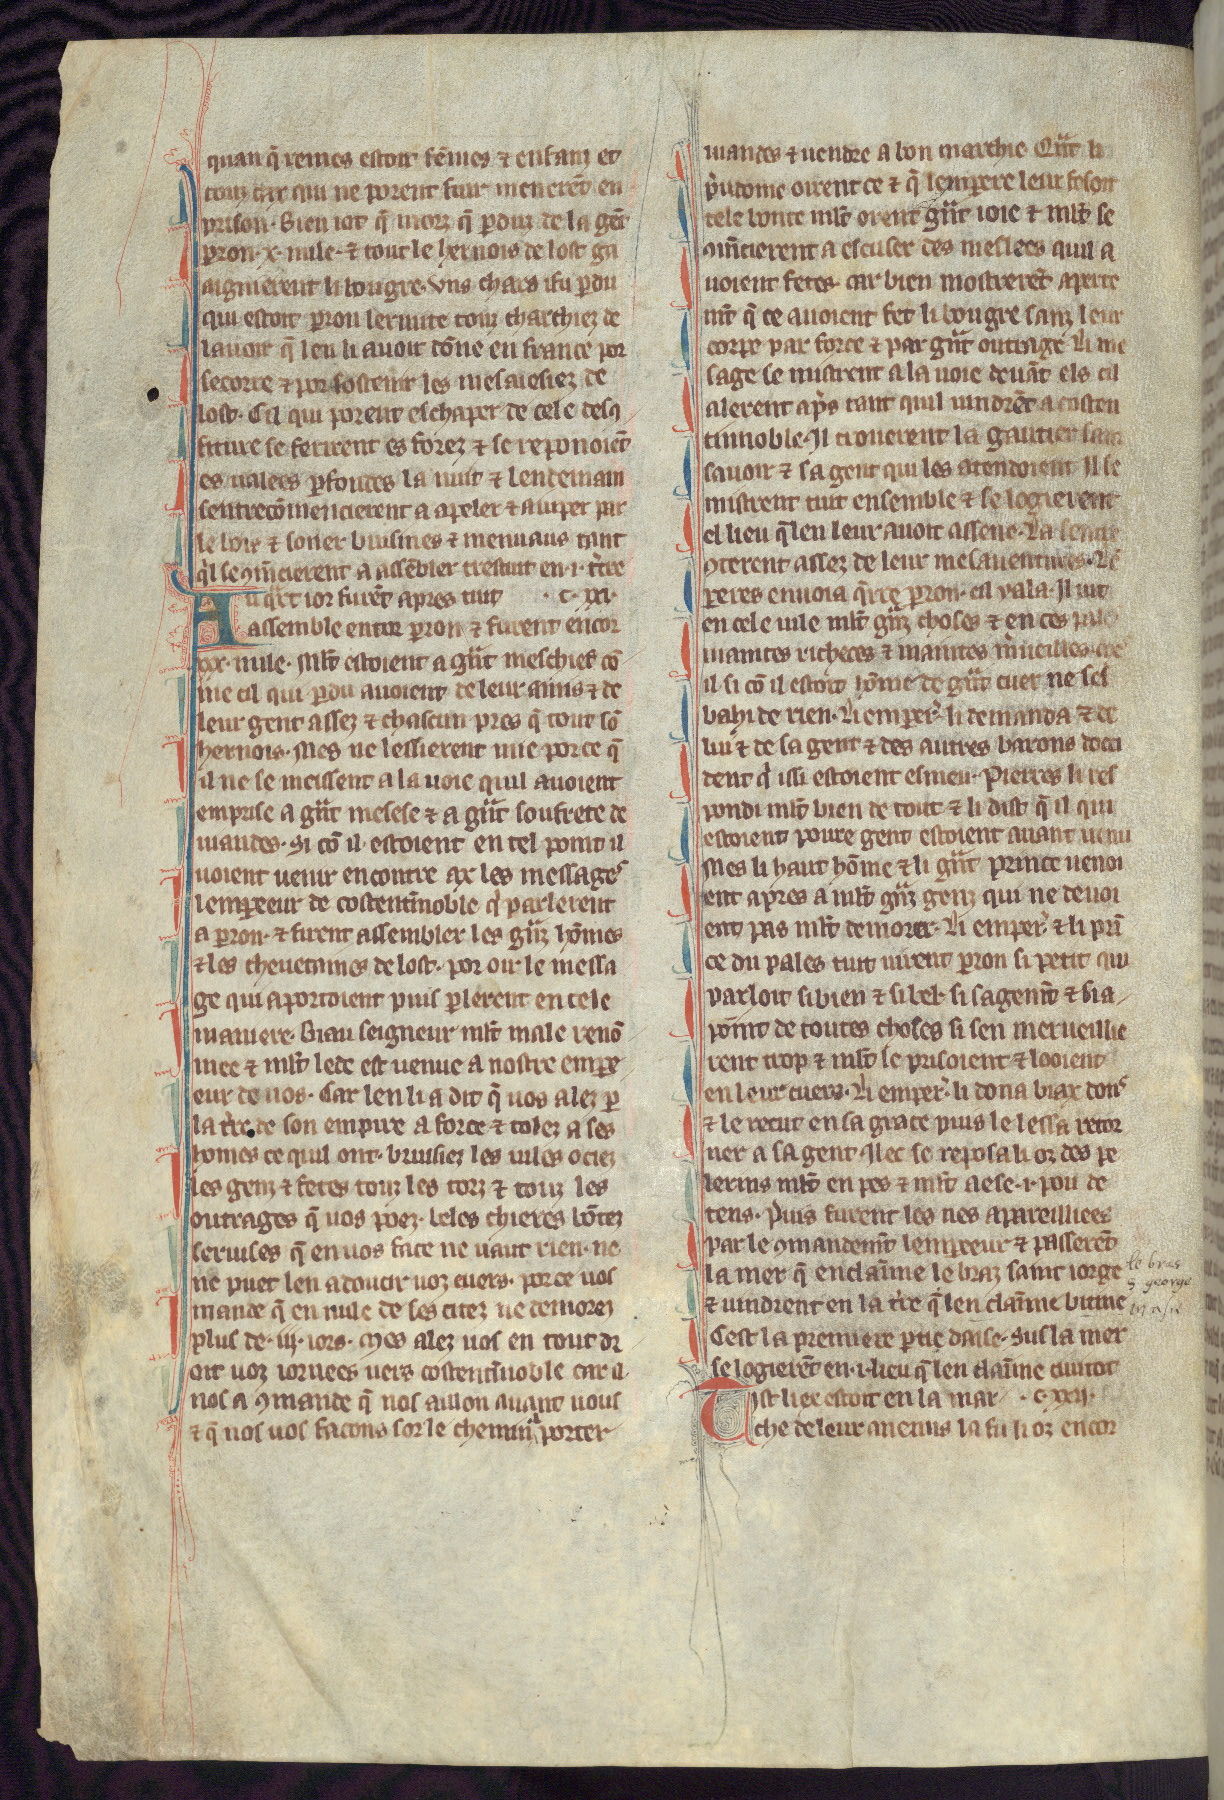 quan q̃ remes estoit fēmes ⁊ enfanz et
touz cex qui ne porent fuir menerēt en
prison. Bien iot q̃ morz q̃ p̱duz de la gēt
p̱ron .x. mile. ⁊ tout le hernois de lost ga
aignierent li bougre. Vns chars ifu p̱du
qui estoit p̱ron lermite touz charchiez de
lauoir q̃ len li auoit dōne en france por
secorre ⁊ por sostenir les mesaiesiez de
lost. Cil qui porent eschaper de cele desc̃
fiture se ferirent es forez ⁊ se reponoiēt
es ualees p̱fondes la nuit ⁊ lendemain
sentrecōmencierent a apeler ⁊ a uiper par
le bois ⁊ soner buisines ⁊ menuaus tant
q̓l se ꝯm̃cierent a assēbler trestuit en .i. t̓tre
Au qᵃrt ior furēt apres tuit .c. xxi.
assemble entor p̱ron ⁊ furent encor
xx. mile. Ml̃t estoient a gᵃ̃t meschief cō
me cil qui p̱du auoient de leur amis ⁊ de
leur gent assez ⁊ chascun pres q̃ tout sō
hernois. Mes ne lessierent mie por ce q̃
il ne se meissent a la uoie quil auoient
emprise a gᵃ̃t mesese ⁊ a gᵃ̃t soufrete de
uiandes. Si cō il estoient en tel point il
uoient uenir encontre ax les messages
lempereeur de costentīnoble q̓ parlerent
a p̱ron. ⁊ firent assembler les gᵃ̃z hōmes
⁊ les cheuetaines de lost. por oir le messa
ge qui aportoient puis p̱lerent en cele
maniere. Biau seigneur ml̃t male renō
mee ⁊ ml̃t lede est uenue a nostre emp̱e
eur de uos. Car len li a dit q̃ uos alez p̱
la t̓re de son empire a force ⁊ tolez a ses
homes ce quil ont. bruisiez les uiles ociez
les genz ⁊ fetes touz les torz ⁊ touz les
outrages q̃ uos poez. beles chieres bōtez
seruises q̃ en uos face ne uaut rien. ne
ne puet len adoucir uoz cuers. por ce uos
mande q̃ en nule de ses citez ne demorez
plus de .iij. iors. Mes alez uos en tout dr
oit uoz iornees uers costentīnoble car il
nos a ꝯmande q̃ nos aillon auant uous
⁊ q̃ nos uos facons sor le chemin porter
uiandes ⁊ uendre a bon marchie Qᵃ̃t li
p̓udome oirent ce ⁊ q̃ lempere leur fesoit
tele bonte ml̃t orent gᵃ̃t ioie ⁊ ml̃t se
ꝯm̃cierent a escuser des meslees quil a
uoient fetes. car bien mostrerēt aperte
mt̃ q̃ ce auoient fet li bougre sanz leur
corpe par force ⁊ par gᵃ̃t outrage. Li me
sage se mistrent a la uoie deuāt els cil
alerent ap̓s tant quil uindrēt a costen
tinnoble. Il trouerent la gautier sanz
sauoir ⁊ sa gent qui les atendoient. Il se
mistrent tuit ensemble ⁊ se logierent
el lieu q̃ len leur auoit assene. La sentre
ꝯterent assez de leur mesauentures. Lē
pereres enuoia q̓rre p̱ron. cil yala. Il uit
en cele uile ml̃t gᵃ̃z choses ⁊ en ces pale
maintes richeces ⁊ maintes m̓ueilles. ce
il si cō il estoit hōme de gᵃ̃t cuer ne sel
bahi de rien. Li emper̓. li demanda ⁊ de
lui ⁊ de sa gent ⁊ des autres barons docci
dent q̓ issi estoient esmeu. Pierres li res
pondi ml̃t bien de tout ⁊ li dist q̃ il qui
estoient poure gent estoient auant uenu
Mes li haut hōme ⁊ li gᵃ̃t prince uenoi
ent apres a ml̃t gᵃ̃z genz qui ne deuoi
ent pas ml̃t demorer. Li emper̓. ⁊ li prī
ce du pales tuit uirent p̱ron si petit qui
parloit si bien ⁊ si bel. si sagemt̃ ⁊ si a
point de toutes choses si sen merueillie
rent trop ⁊ ml̃t le prisoient ⁊ looient
en leur cuers. Li emper̓. li dona biax dons
⁊ le recut en sa grace puis le lessa retor
ner a sa gent. Ilec se reposa li oz des pe
lerins ml̃t en pes ⁊ ml̃t a ese .i. pou de
tens. Puis furent les nes apareilliees
par le ꝯmandemt̃ lempereeur ⁊ passerēt
la mer q̃ en claīme le braz saint iorge
⁊ uindrent en la t̓re q̃ len claīme bitine
Cest la premiere p̱tie daise. Sus la mer
se logierēt en .i. lieu q̃ len claīme ciuitot
le bras
S george
Cist liex estoit en la mar .c. xxij.
che de leur anemis la fu li oz encor